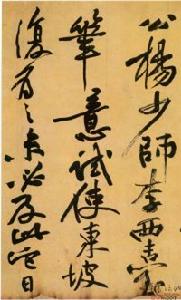 公楊少師李西臺
筆意試使東坡
復為之未必及此它日